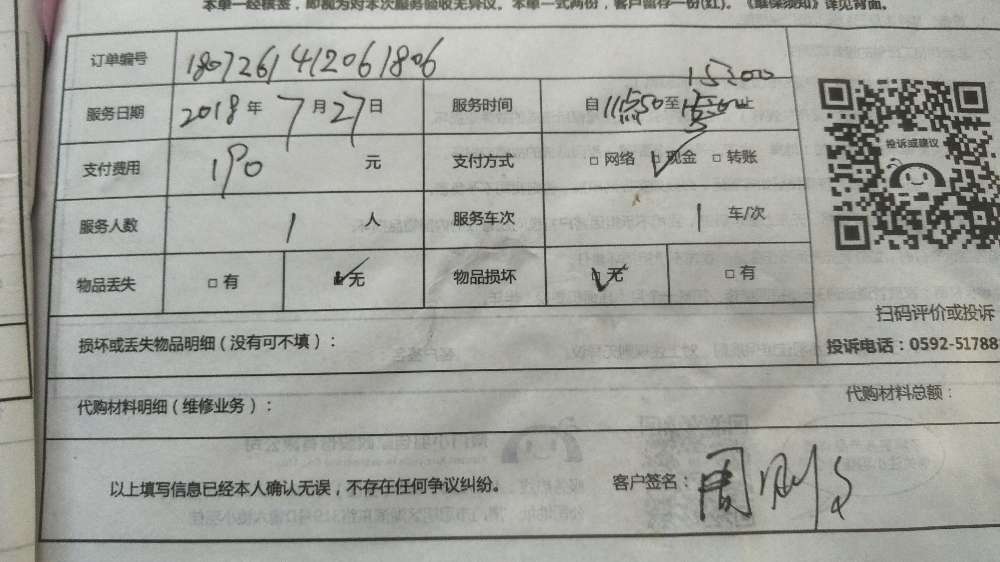 本单一经核签，即视为对本次服务验收无异议。本单一式两份，客户留存一份(红)。《维保须知》详见背面。
订单编号 1807261412061806
服务日期 2018年7月27日 服务时间 自11点50至 15:00 止
支付费用 190 元 支付方式 □网络 ☑现金 □转账
服务人数 1 人 服务车次 1 车/次
物品丢失 □有 ☑无 物品损坏 ☑无 □有
投诉或建议
扫码评价或投诉
损坏或丢失物品明细（没有可不填）：
投诉电话：0592-51788
代购材料明细（维修业务）：
代购材料总额：
以上填写信息已经本人确认无误，不存在任何争议纠纷。 客户签名：周